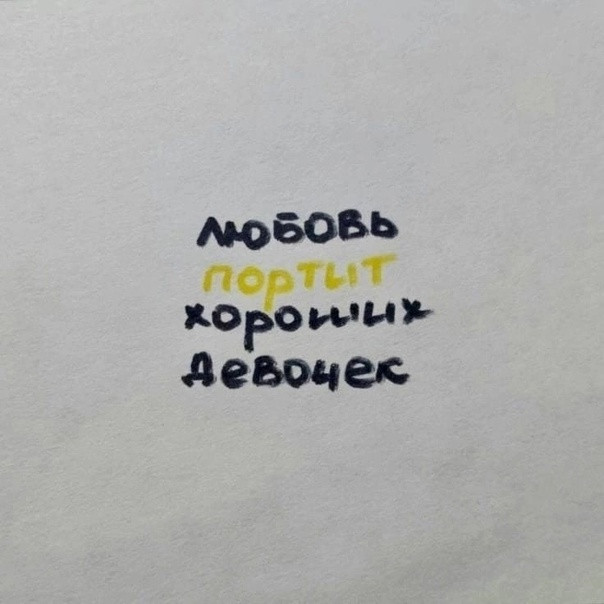 любовь
портит
хороших
девочек